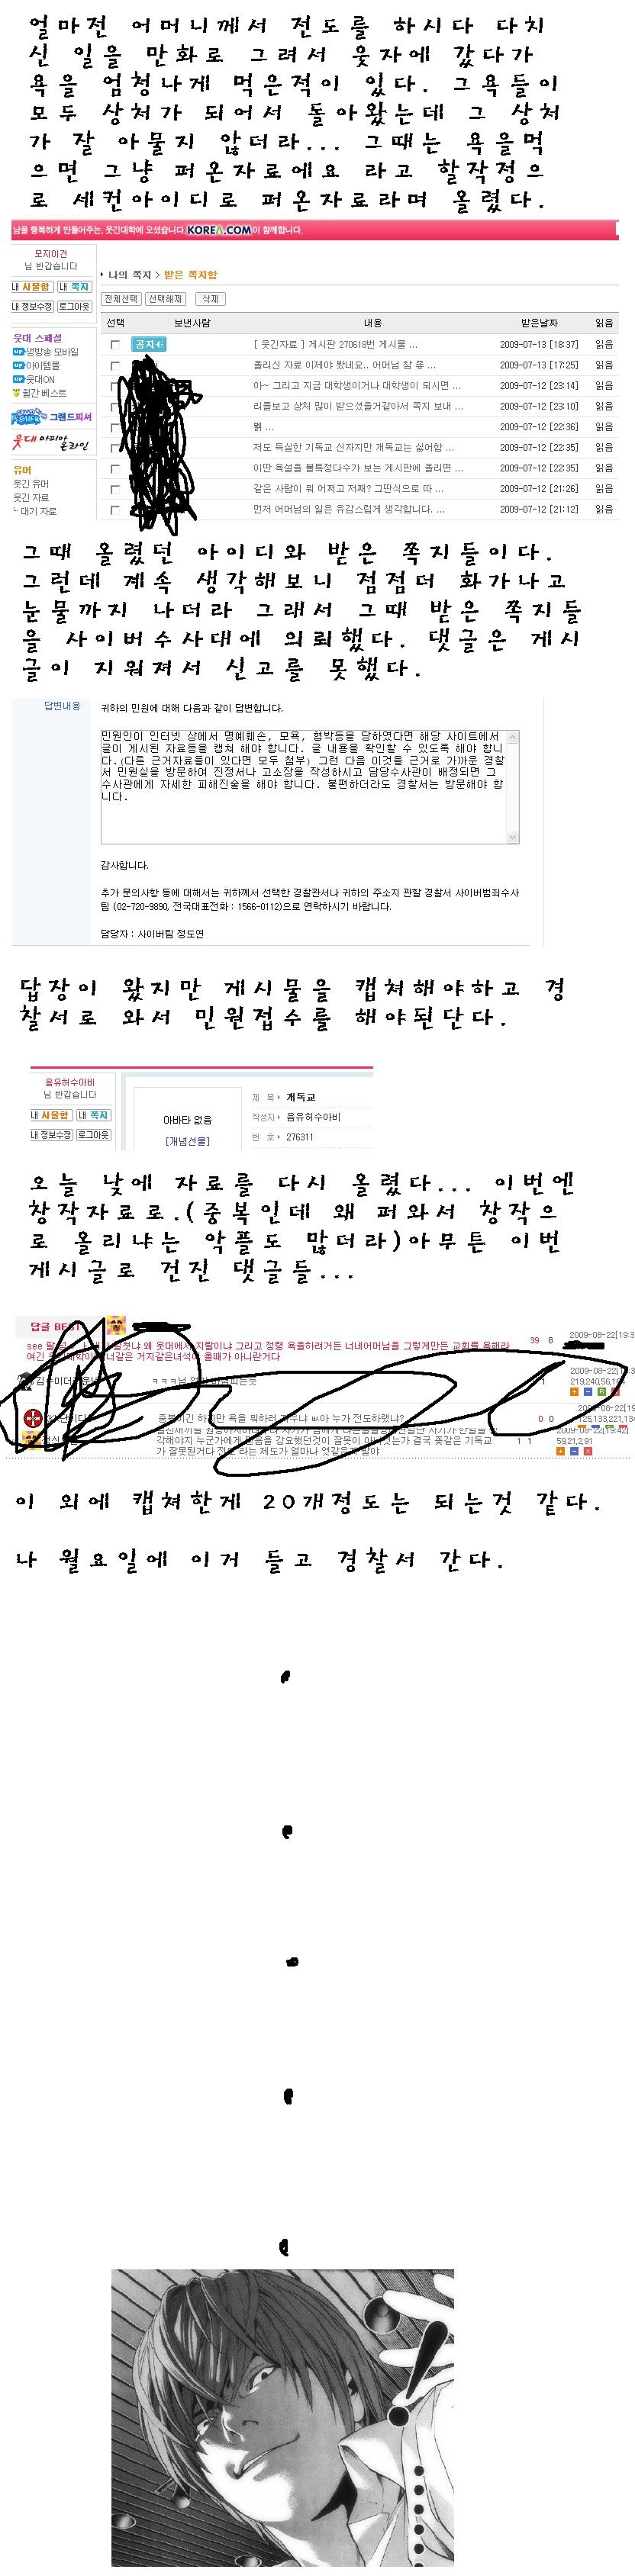 얼마전 어머니께서 전도를 하시다 다치
신 일을 만화로 그려서 웃자에 갔다가
욕을 엄청나게 먹은적이 있다. 그욕들이
모두 상처가 되어서 돌아왔는데 그 상처
가 잘 아물지 않더라... 그때는 욕을먹
으면 그냥 퍼온자료에요 라고 할작정으
로 세컨아이디로 퍼온자료라며 올렸다.
남을 행복하게 만들어주는, 웃긴대학에 오셨습니다. KOREA.COM이 함께합니다.
모지이건
님 반갑습니다
내 사물함 내 쪽지
내 정보수정 로그아웃
나의 쪽지 > 받은 쪽지함
전체선택 선택해제 삭제
선택 보낸사람 내용 받은날짜 읽음
공지 [ 웃긴자료 ] 게시판 270618번 게시물 ... 2009-07-13 [18:37] 읽음
올리신 자료 이제야 봤네요.. 어머님 참 좋 ... 2009-07-13 [17:25] 읽음
아~ 그리고 지금 대학생이거나 대학생이 되시면 ... 2009-07-12 [23:14] 읽음
리플보고 상처 많이 받으셨을거같아서 쪽지 보내 ... 2009-07-12 [23:10] 읽음
뷁 ... 2009-07-12 [22:36] 읽음
저도 독실한 기독교 신자지만 개독교는 싫어합 ... 2009-07-12 [22:35] 읽음
이딴 욕설을 불특정다수가 보는 게시판에 올리면 ... 2009-07-12 [22:35] 읽음
같은 사람이 뭐 어쩌고 저째? 그딴식으로 따 ... 2009-07-12 [21:26] 읽음
먼저 어머님의 일은 유감스럽게 생각합니다. ... 2009-07-12 [21:12] 읽음
웃대 스페셜
UP 생방송 모바일
UP 아이템몰
UP 웃대ON
월간 베스트
그랜드피셔
웃대 마피아 온라인
유머
웃긴 유머
웃긴 자료
대기 자료
그때 올렸던 아이디와 받은 쪽지들이다.
그런데 계속 생각해보니 점점더 화가나고
눈물까지 나더라 그래서 그때 받은 쪽지들
을 사이버수사대에 의뢰했다. 댓글은 게시
글이 지워져서 신고를 못했다.
답변내용 귀하의 민원에 대해 다음과 같이 답변합니다.
민원인이 인터넷 상에서 명예훼손, 모욕, 협박등을 당하였다면 해당 사이트에서
글이 게시된 자료등을 캡쳐 해야 합니다. 글 내용을 확인할 수 있도록 해야 합니
다.(다른 근거자료들이 있다면 모두 첨부) 그런 다음 이것을 근거로 가까운 경찰
서 민원실을 방문하여 진정서나 고소장을 작성하시고 담당수사관이 배정되면 그
수사관에게 자세한 피해진술을 해야 합니다. 불편하더라도 경찰서는 방문해야 합
니다.
감사합니다.
추가 문의사항 등에 대해서는 귀하께서 선택한 경찰관서나 귀하의 주소지 관할 경찰서 사이버범죄수사
팀 (02-720-9890, 전국대표전화 : 1566-0112)으로 연락하시기 바랍니다.
담당자 : 사이버팀 정도연
답장이 왔지만 게시물을 캡쳐해야하고 경
찰서로 와서 민원접수를 해야된단다.
음유허수아비
님 반갑습니다
내 사물함 내 쪽지
내 정보수정 로그아웃
아바타 없음
[개념선물]
제 목 개독교
작성자 음유허수아비
번 호 276311
오늘 낮에 자료를 다시 올렸다... 이번엔
창작자료로.(중복인데 왜 퍼와서 창작으
로 올리냐는 악플도 많더라)아무튼 이번
게시글로 건진 댓글들...
답글 BEST
웃대에서 지랄이냐 그리고 정령 욕을하려거든 너네어머님을 그렇게만든 교회를 욕해라
39 8
거지같은녀석이 올때가 아니란거다
ㅋㅋㅋ
욕을 뭐하러
누가 전도하랬냐?
0 0
이 외에 캡쳐한게 20개정도는 되는것 같다.
나 월요일에 이거 들고 경찰서 간다.